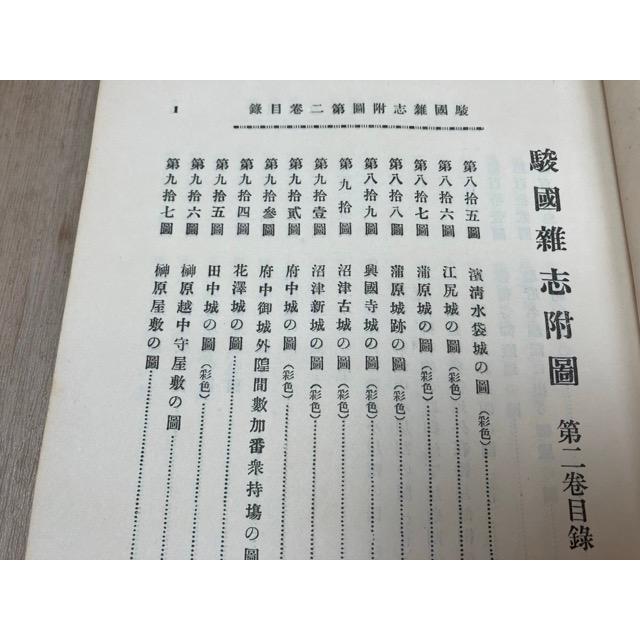 駿國雜志附圖 第二卷目錄
錄目卷二第圖附志雜國駿
1
第八拾五圖 濱清水袋城の圖(彩色)
第八拾六圖 江尻城の圖(彩色)
第八拾七圖 蒲原城の圖(彩色)
第八拾八圖 蒲原城跡の圖(彩色)
第八拾九圖 興國寺城の圖(彩色)
第九拾圖 沼津古城の圖(彩色)
第九拾壹圖 沼津新城の圖(彩色)
第九拾貳圖 府中城の圖(彩色)
第九拾參圖 府中御城外隍間數加番衆持塲の圖
第九拾四圖 花澤城の圖
第九拾五圖 田中城の圖(彩色)
第九拾六圖 榊原越中守屋敷の圖
第九拾七圖 榊原屋敷の圖